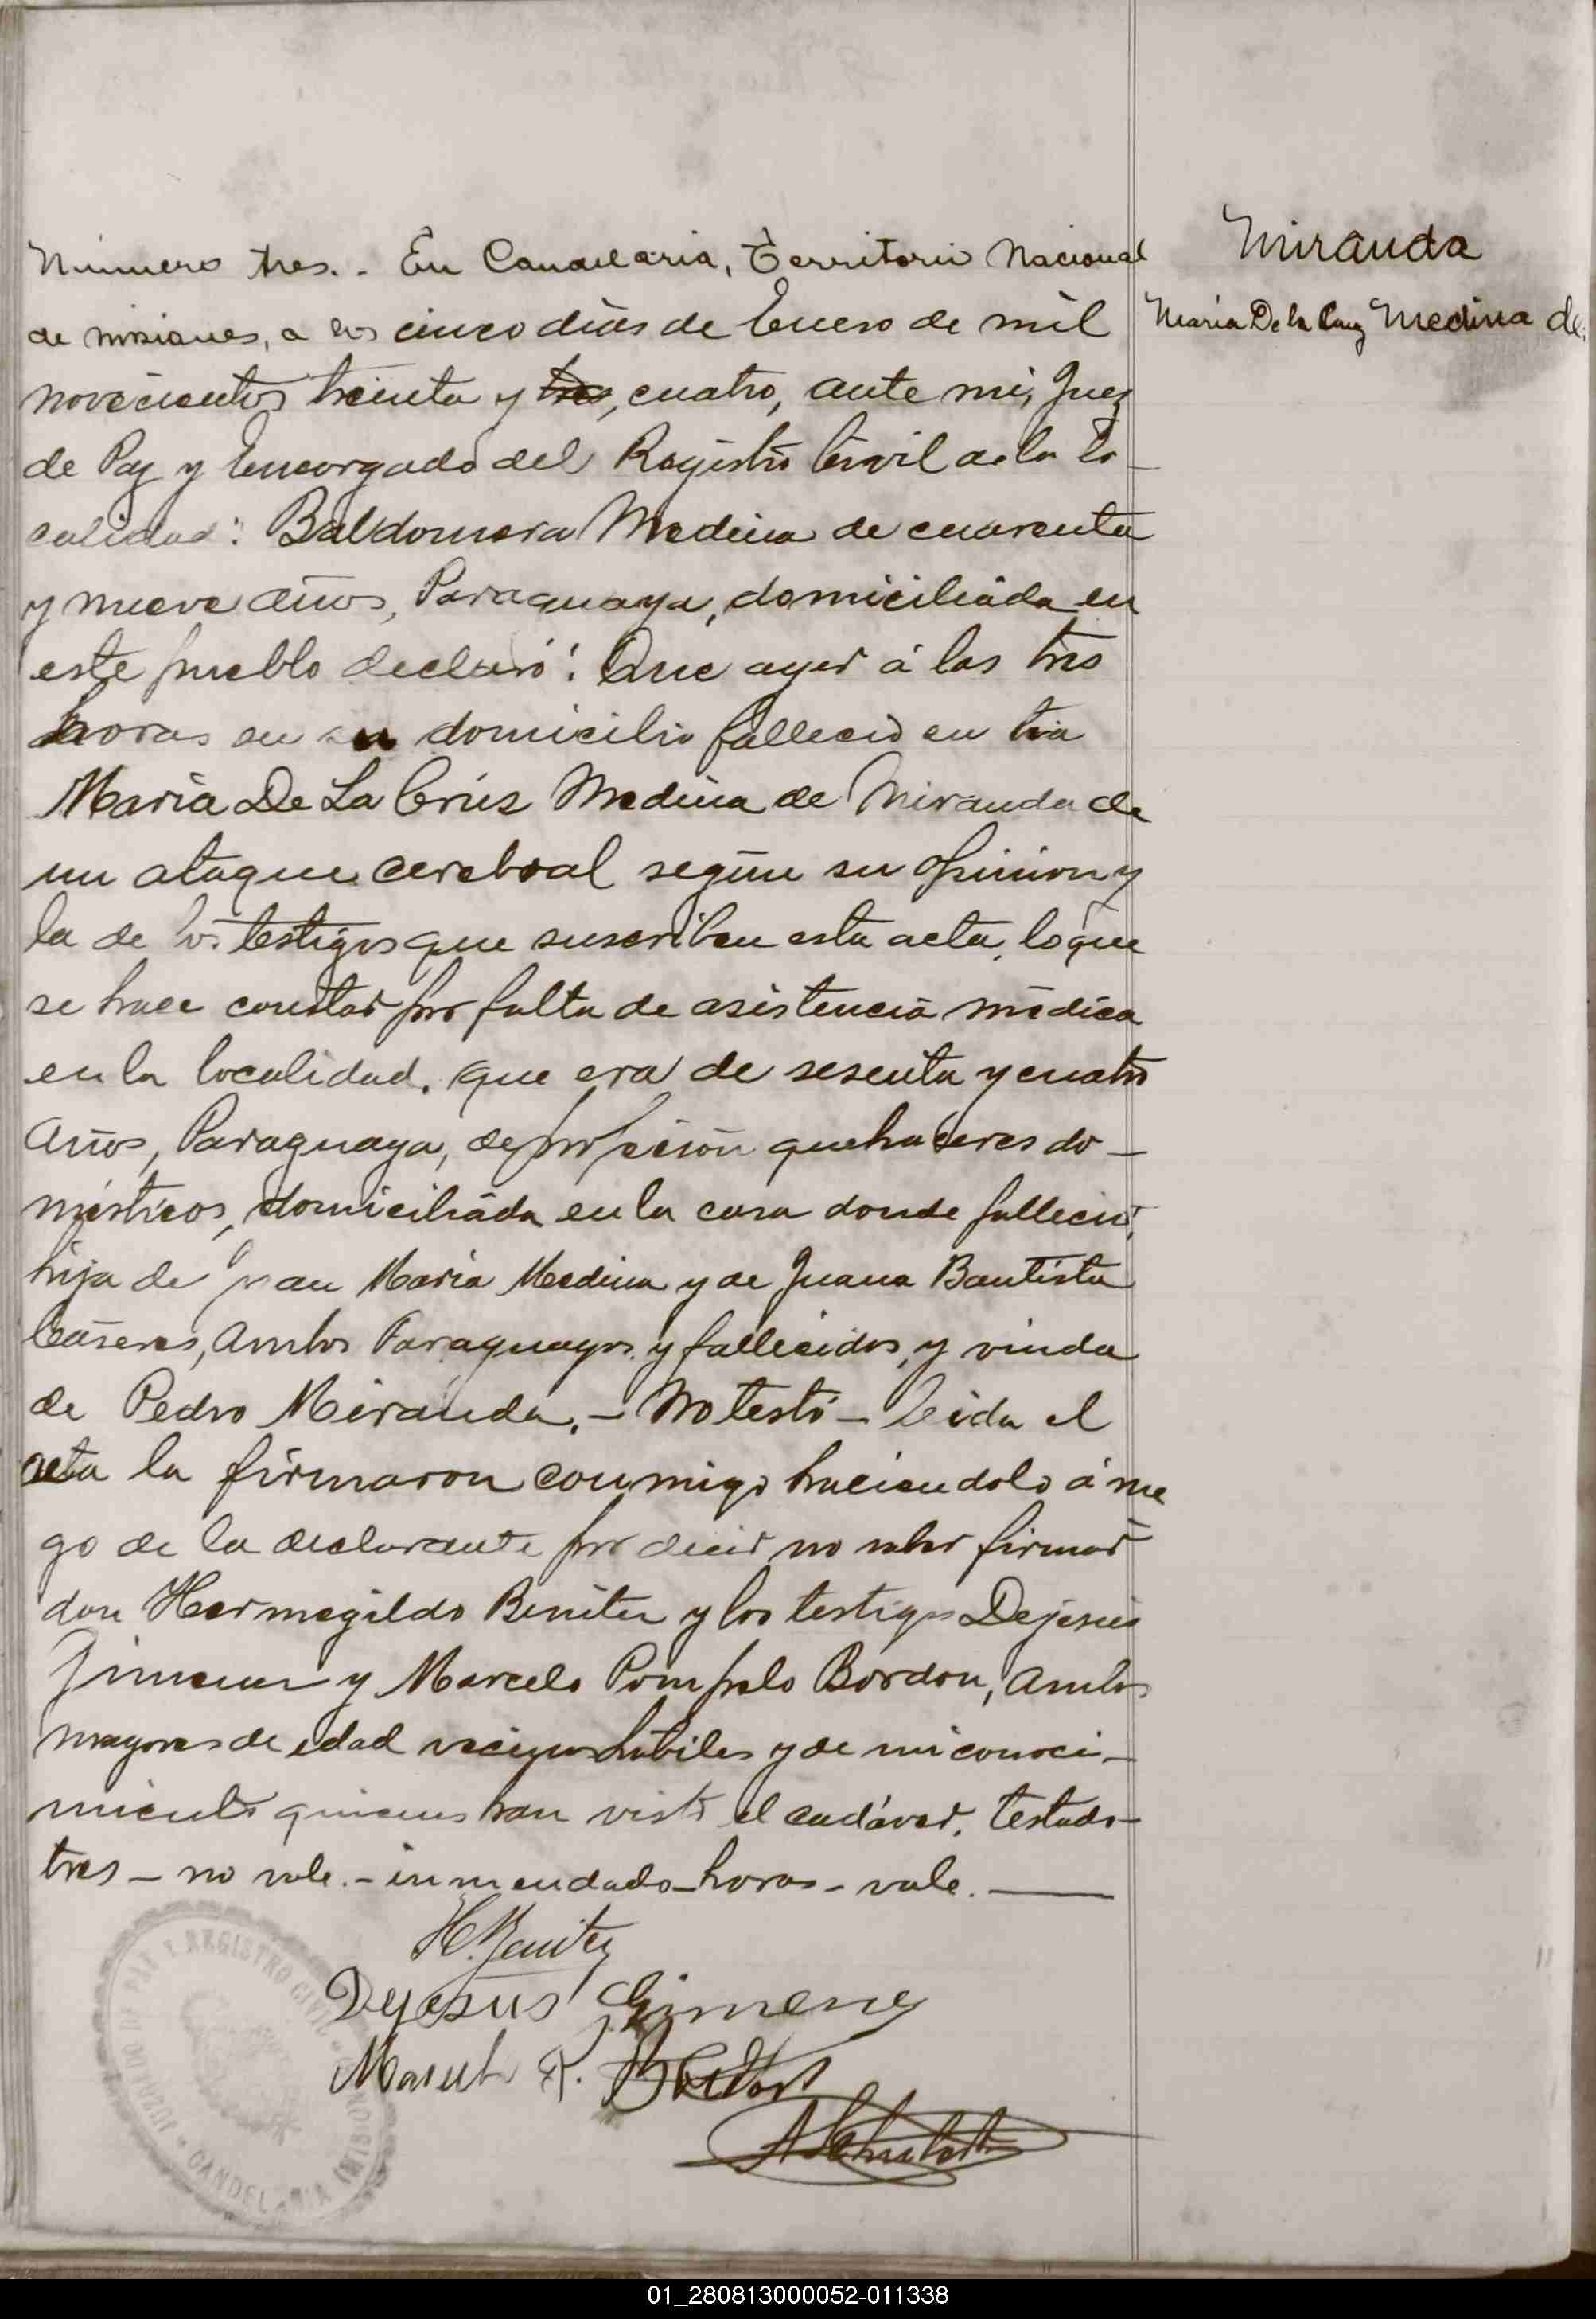 Miranda
Maria De la Cruz Medina de
Número tres.- En Candelaria, Territorio Nacional
de Misiones, a los cinco días de Enero de mil
novecientos treinta y tres, cuatro, ante mi, Juez
de Paz y Encargado del Registro Civil de la lo-
calidad: Baldomera Medina de cuarenta
y nueve años, Paraguaya, domiciliada en
este pueblo declaró: Que ayer á las tres
horas en su domicilio falleció en tia
Maria De La Crúz Medina de Miranda de
un ataque cerebral según su opinion y
la de los testigos que suscriben esta acta, lo que
se hace constar por falta de asistencia médica
en la localidad. que era de sesenta y cuatro
años, Paraguaya, de profeción quehaceres do-
mésticos, domiciliada en la casa donde falleció,
hija de Juan Maria Medina y de Juana Bautista
Cañeres, ambos Paraguayos y fallecidos, y viuda
de Pedro Miranda.- No testó- Leida el
acta la firmaron conmigo haciendolo á rue
go de la declarante por decir no saber firmar
don Hermegildo Benitez y los testigos Dejesús
Jimenez y Marcelo Pompelo Bordon, ambos
mayores de edad vecinos hábiles y de mi conoci-
miento quienes han visto el cadáver. Testado-
tres- no vale.- inmendado-horas- vale.
H. Benitez
Dejesus Gimenez
Marcelo P. Bordon
JUZGADO DE PAZ Y REGISTRO CIVIL
CANDELARIA (MISIONES)
01_280813000052-011338